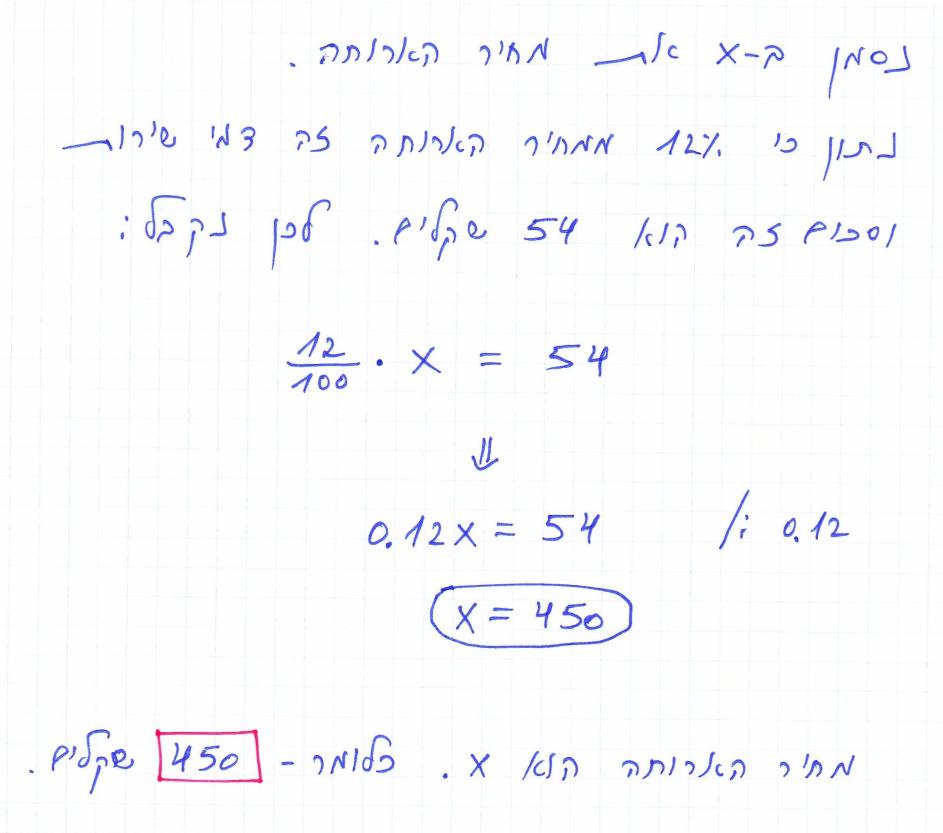 נסמן ב-x את מחיר הארוחה.
נתון כי 12% ממחיר הארוחה זה דמי שירות
וסכום זה הוא 54 שקלים. לכן נקבל:
12/100 · x = 54
⇓
0.12x = 54 /: 0.12
x = 450
מחיר הארוחה הוא x. כלומר - 450 שקלים.